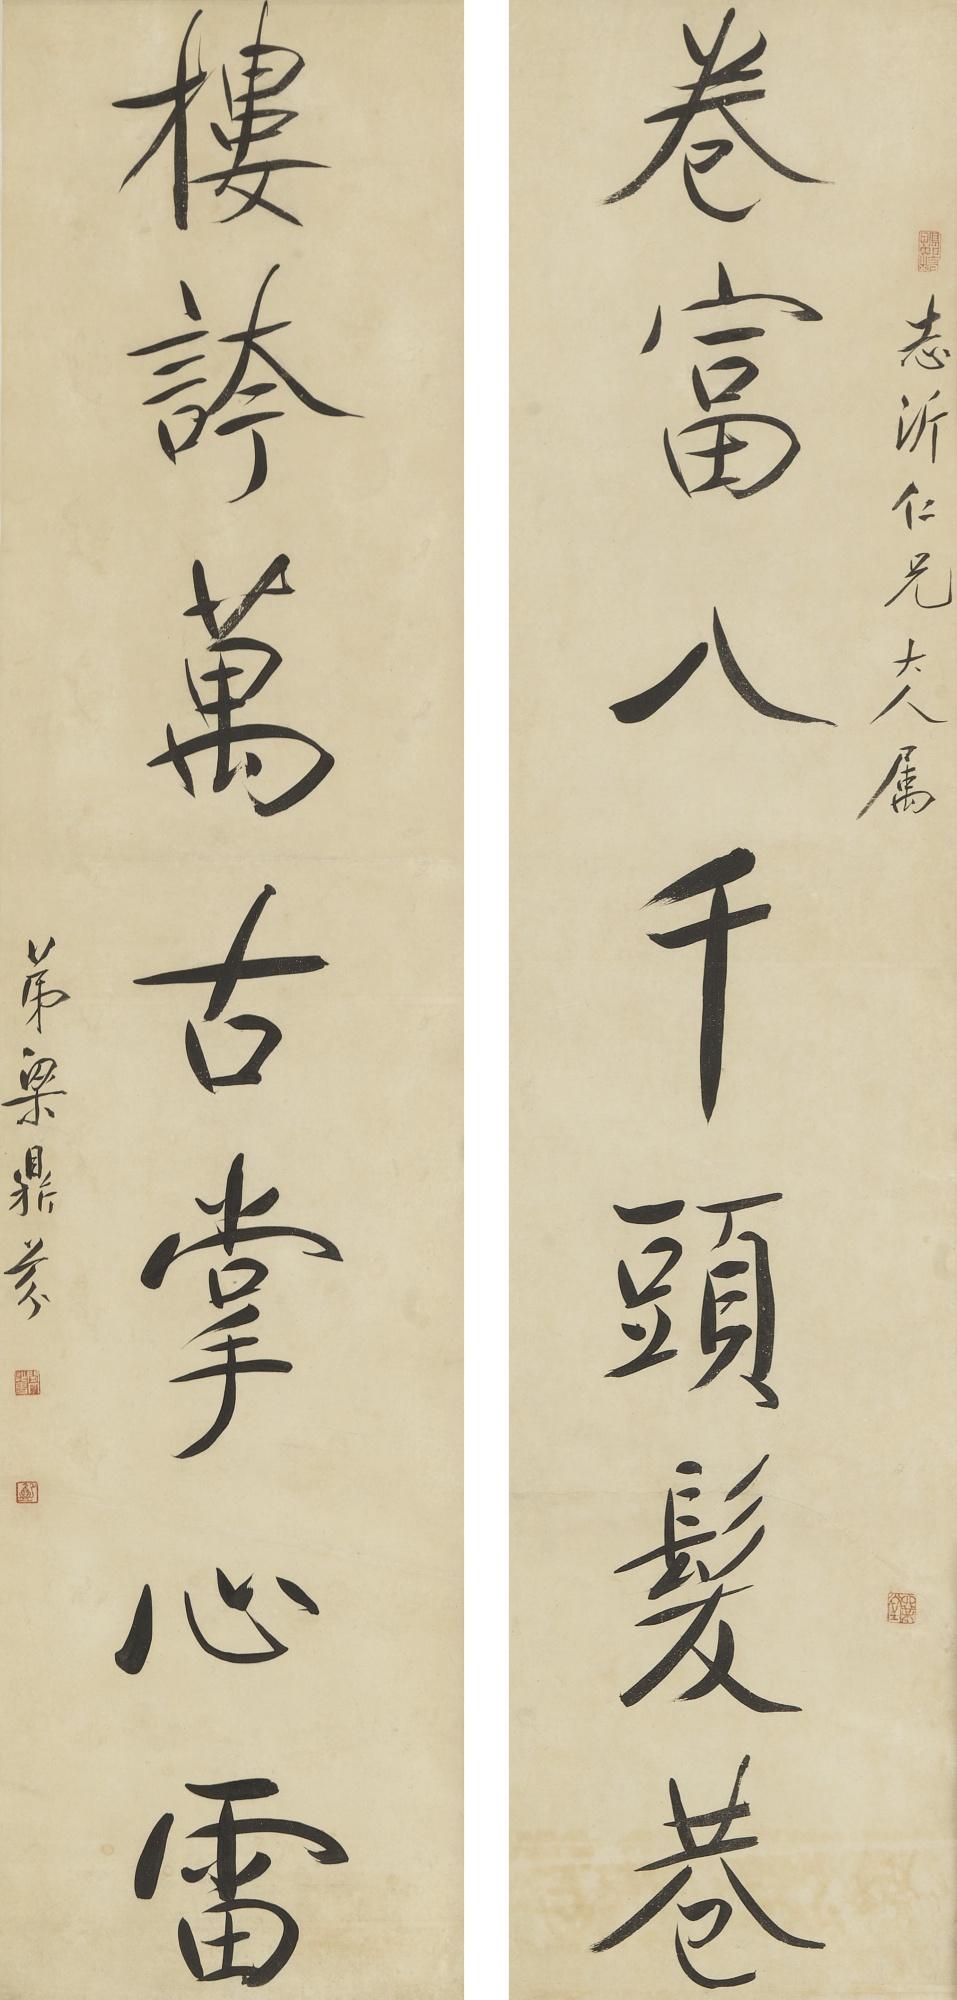 志沂仁兄大人属
卷富八千頭髮巷
樓誇萬古掌心雷
弟梁鼎芬